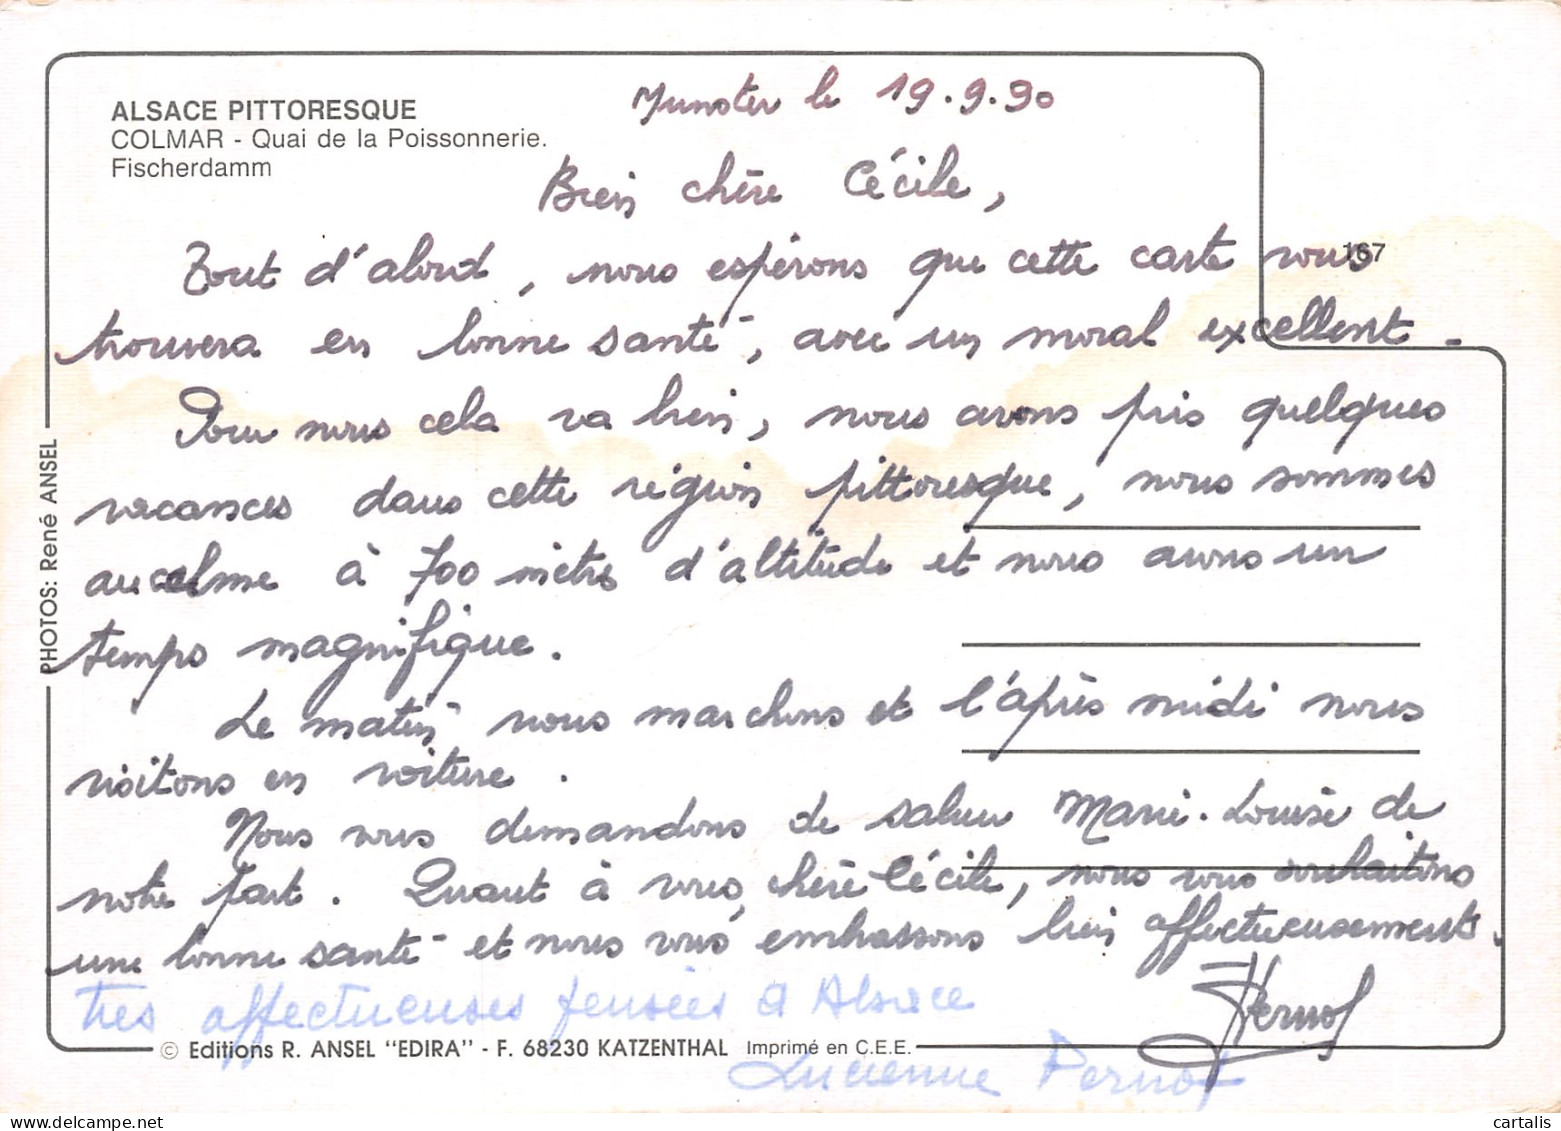 ALSACE PITTORESQUE
COLMAR - Quai de la Poissonnerie.
Fischerdamm
167
PHOTOS: René ANSEL
Munster le 19.9.90
Bien chère Cécile,
Tout d'abord, nous espérons que cette carte vous
trouvera en bonne santé, avec un moral excellent.
Pour nous cela va bien, nous avons pris quelques
vacances dans cette région pittoresque, nous sommes
au calme à 700 mètres d'altitude et nous avons un
temps magnifique.
Le matin nous marchons et l'après midi nous
visitons en voiture.
Nous vous demandons de saluer Marie-Louise de
notre part. Quant à vous, chère Cécile, nous vous souhaitons
une bonne santé et nous vous embrassons bien affectueusement.
Pernof
très affectueuses pensées d'Alsace
Lucienne Pernot
© Editions R. ANSEL "EDIRA" - F. 68230 KATZENTHAL Imprimé en C.E.E.
cartalis